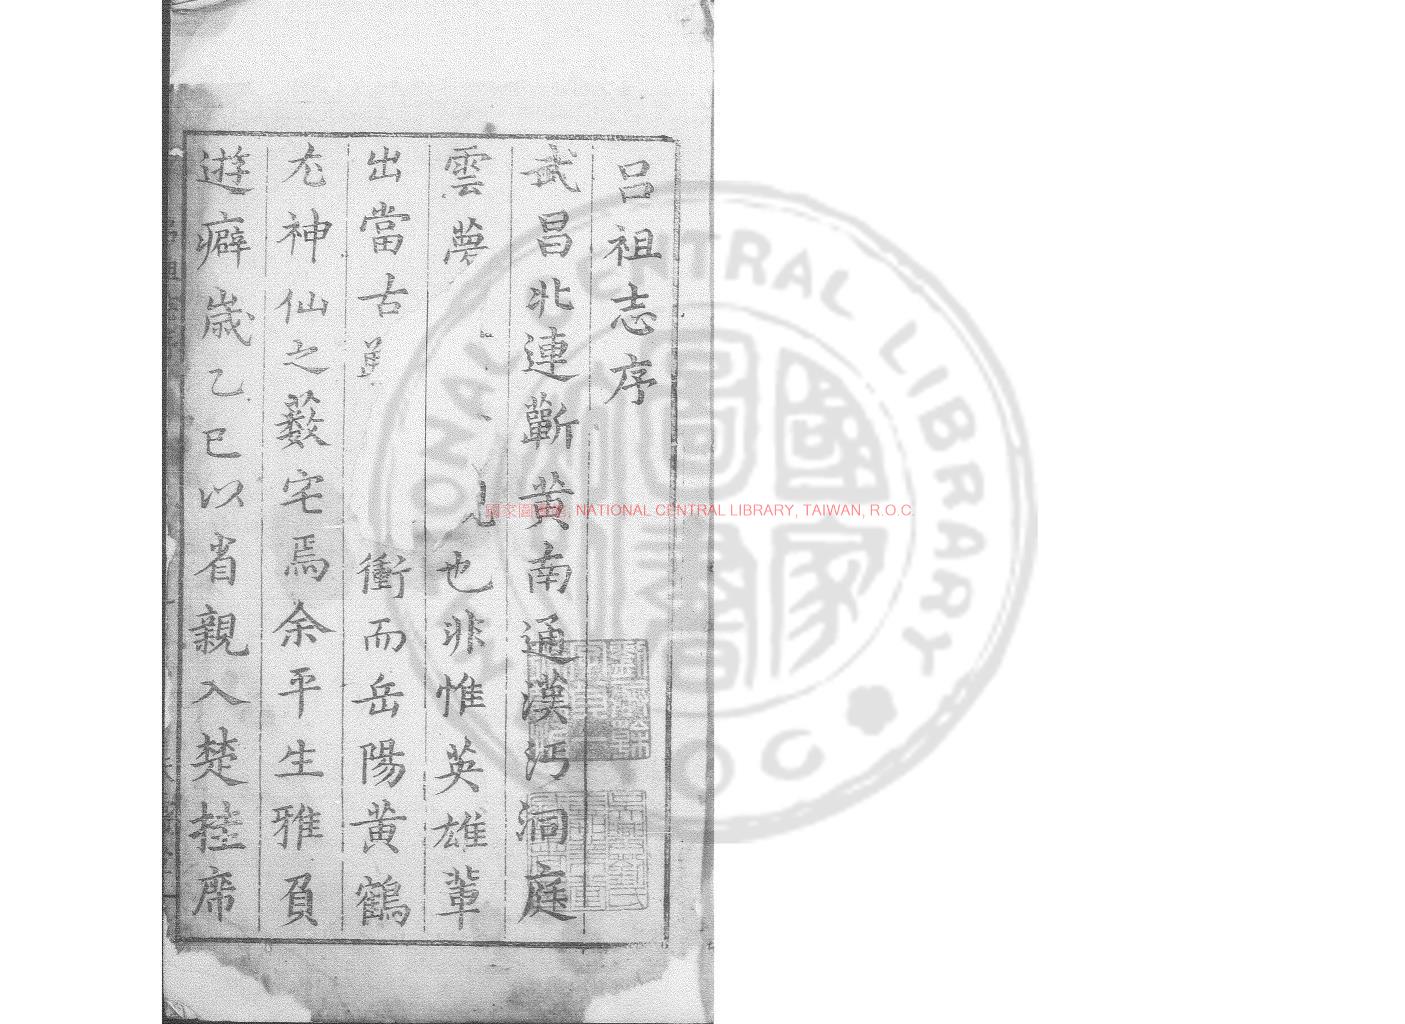 呂祖志序
武昌北連蘄黄南通漢沔洞庭
雲夢見也非惟英雄輩
出當古衝而岳陽黄鶴
尤神仙之藪宅焉余平生雅負
遊癖歲乙巳以省親入楚挂席
NATIONAL CENTRAL LIBRARY, TAIWAN, R.O.C.
NATIONAL CENTRAL LIBRARY
R.O.C
國家圖書館